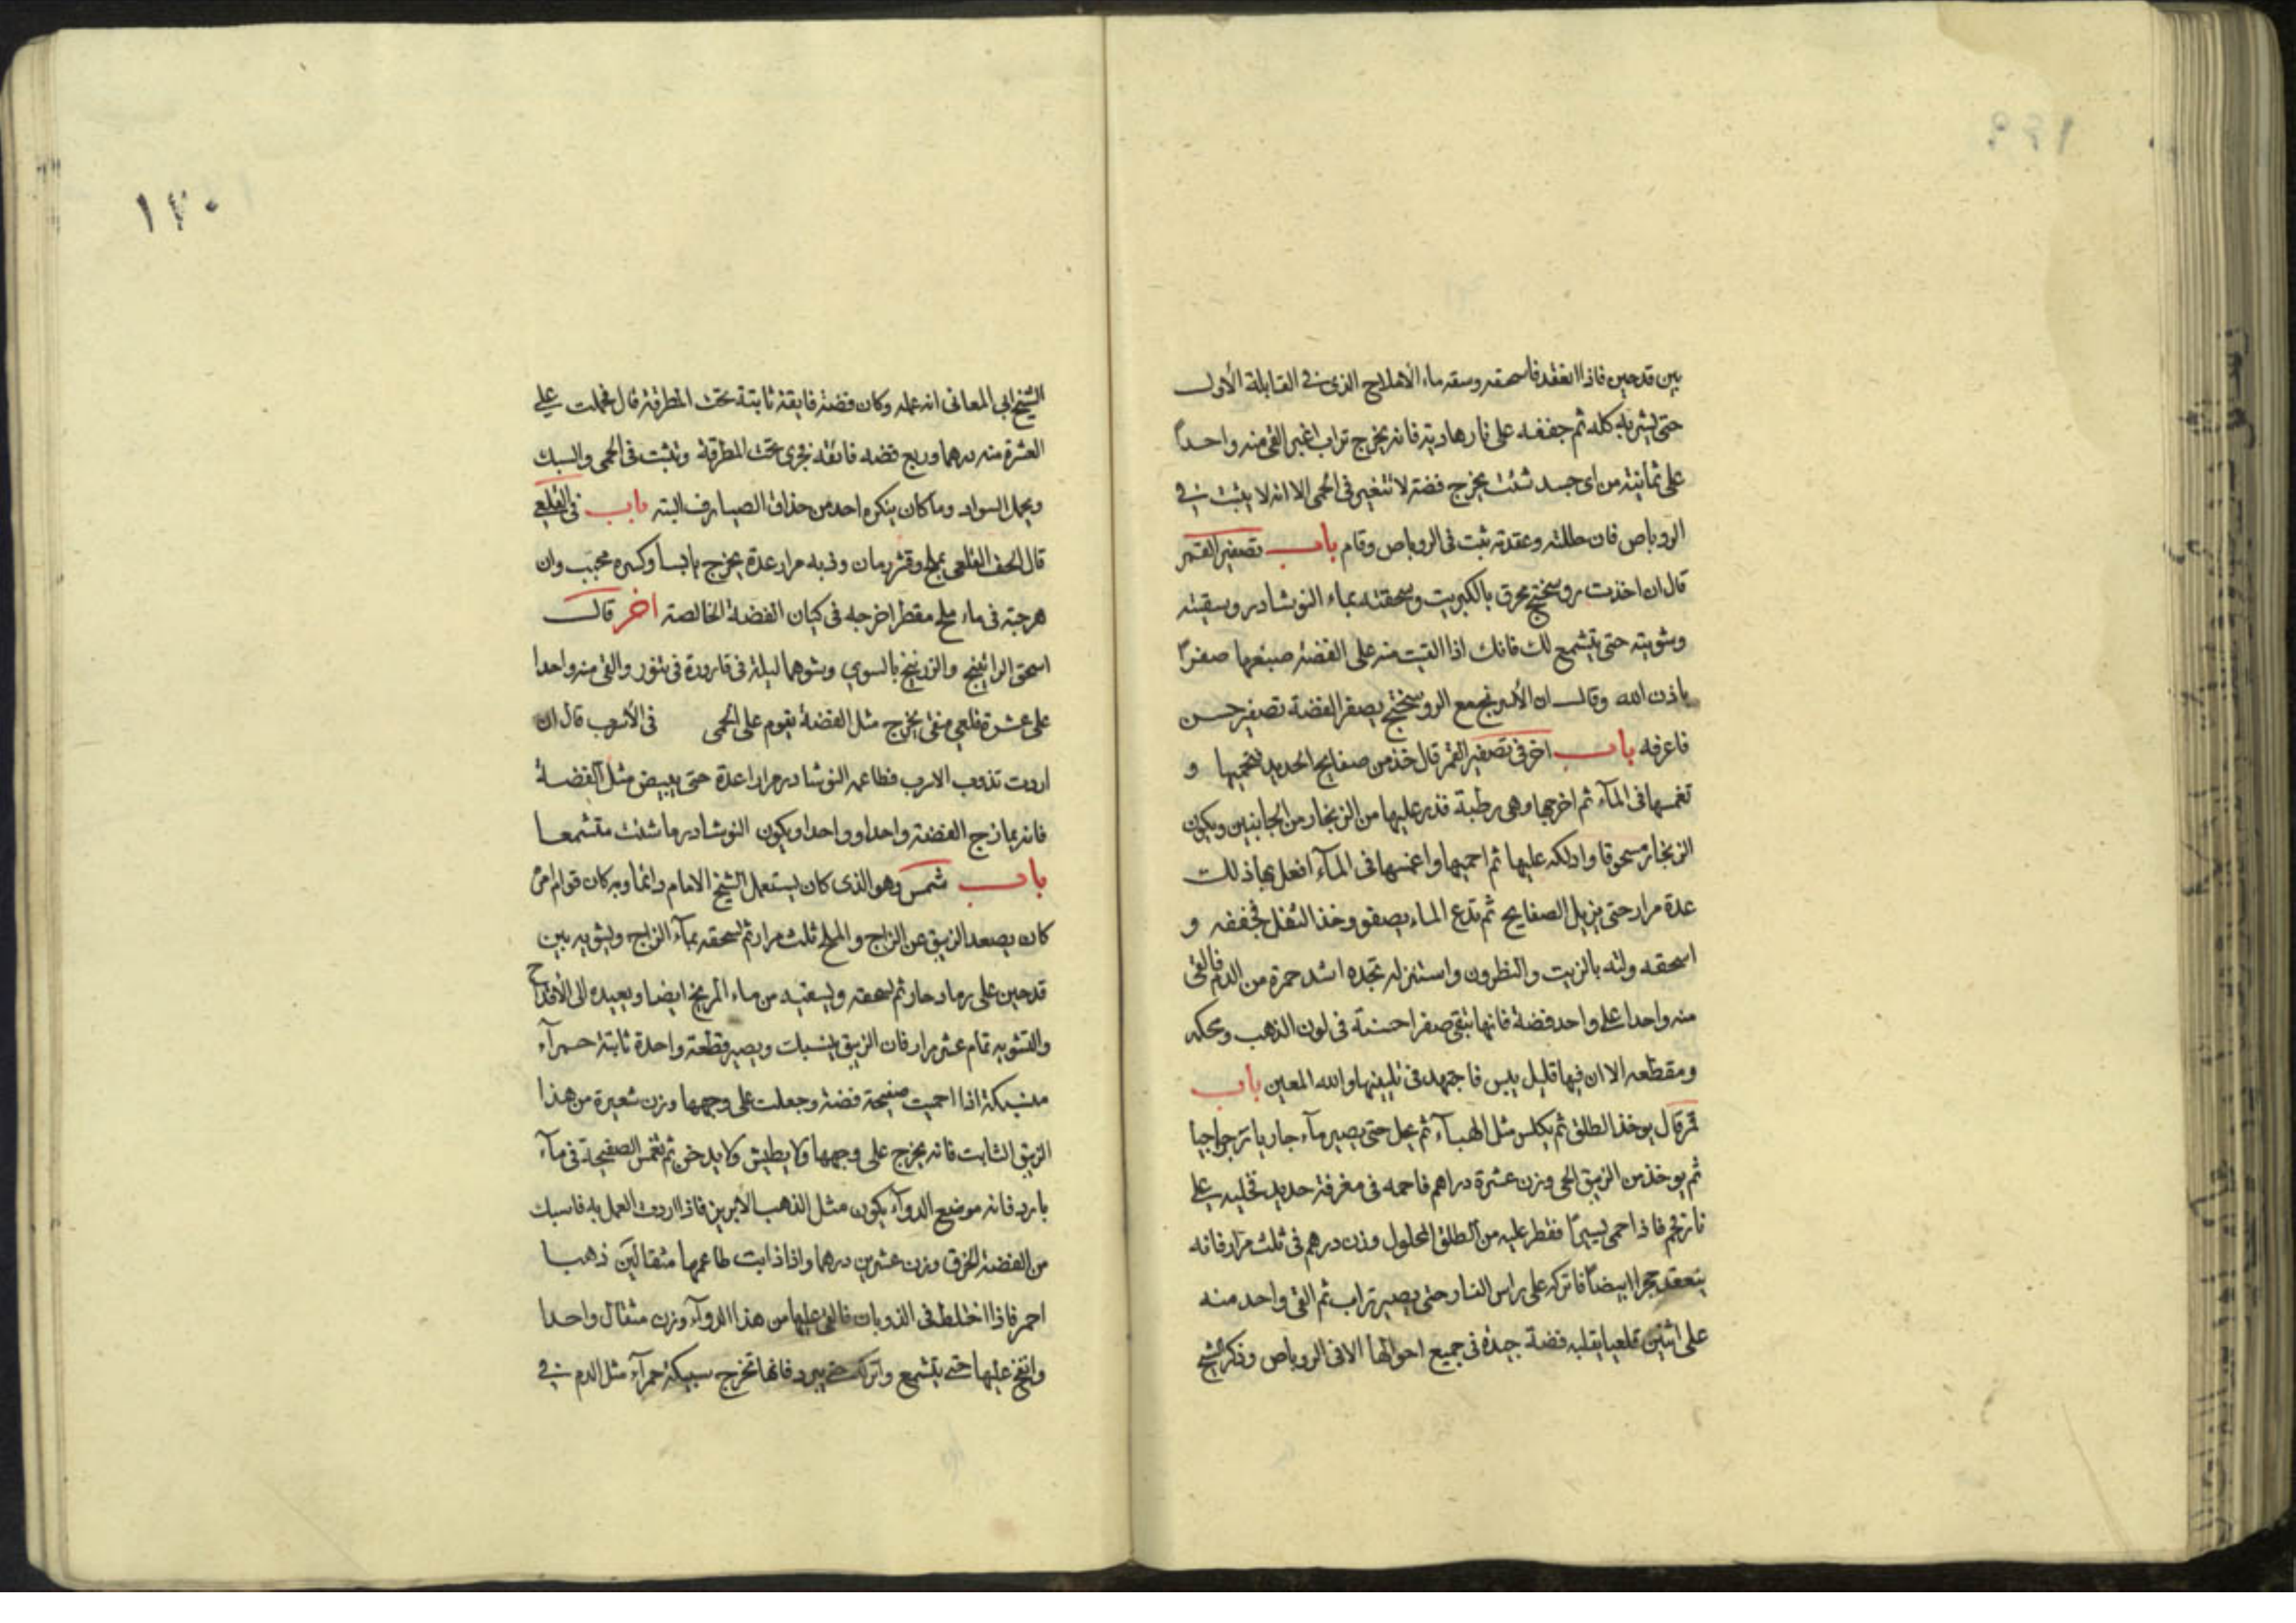 بين قدحين فاذا انعقد فاسحقه وسقه ماء الاملاح الذى فى القابلة الأول
حتى يشربه كله ثم جففه على نار هادية فانه يخرج تراب اغبر القى منه واحداً
على ثمانية من اى جسد شئت يخرج فضة لا تتغير فى الحمى الا انه لا يثبت فى
الروباص فان حللته وعقدته ثبت فى الروباص وقام باب تصفير القمر
قال ان اخذت روسختج محرق بالكبريت وسحقته بماء النوشادر وسقيته
وشويته حتى يتشمع لك فانك اذا القيت منه على الفضة صبغها صفراً
باذن الله وقال ان الأسرنج مع الروسختج يصفر الفضة تصفير حسن
فاعرفه باب اخر فى تصفير القمر قال خذ من صفايح الحديد فتحميها و
تغمسها فى المآء ثم اخرجها وهى رطبة فذر عليها من الزنجار من الجانبين ويكون
الزنجار مسحوقا وادلكه عليها ثم احميها واغمسها فى المآء افعل بها ذلك
عدة مرار حتى يزيل الصفايح ثم تدع الماء يصفو وخذ الثفل فجففه و
اسحقه ولته بالزيت والنظرون واستنزله تجده اشد حمرة من الدم فالقى
منه واحدا على واحد فضة فانها تبقى صفرا حسنة فى لون الذهب ومحكه
ومقطعه الا ان فيها قليل يبس فاجتهد فى تليينها والله المعين باب
قمر قال يوخذ الطلق ثم يكلس مثل الهبآء ثم يحل حتى يصير مآء جاريا رجراجيا
ثم يوخذ من الزيبق الحى وزن عشرة دراهم فاحمه فى مغرفة حديد تخليه على
نار فحم فاذا حمى يسيرًا فقطر عليه من الطلق المحلول وزن درهم فى ثلث مرار فانه
ينعقد حجرا ابيضاً فاتركه على راس النار حتى يصير تراب ثم القى واحد منه
على اثنين قلعيا يقلبه فضة جيدة فى جميع احوالها الا فى الروباص وذكر الشيخ
١٣٠
الشيخ ابى المعانى انه عمله وكان فضة فايقة ثابتة تحت المطرقة قال فحملت على
العشرة منه درهما وربع فضه فائقه تجرى تحت المطرقة وتثبت فى الحمى والسبك
ويحمل السواد وما كان ينكره احد من حذاق الصيارف البته باب فى القلعى
قال الحف القلعى بملح وقشر رمان وذبه مرار عدة يخرج يابسا وكسره محبب وان
هرجته فى ماء ملح مقطر اخرجه فى كيان الفضة الخالصة اخر قال
اسحق الراتينج والزرنيخ بالسوي وشوهما ليلة فى قارورة فى تنور والقى منه واحدا
على عشرة قلعى منقى يخرج مثل الفضة يقوم على الحمى فى الأسرب قال ان
اردت تذوب الاسرب فطاعمه النوشادر مرارا عدة حتى يبيض مثل الفضة
فانه يمازج الفضة واحدا وواحدا ويكون النوشادر ما شئت متشمعا
باب شمس وهو الذى كان يستعمل الشيخ الامام دائما وبه كان قوام امره
كان يصعد الزيبق عن الزاج والملح ثلث مرار ثم يسحقه بمآء الزاج ويشويه بين
قدحين على رماد حار ثم يسحقه ويسقيه من ماء المريخ ايضا ويعيده الى الأقداح
والتشويه تمام عشر مرار فان الزيبق ينسبك ويصير قطعة واحدة ثابتة حمرآء
منسبكة اذا احميت صفيحة فضة وجعلت على وجهها وزن شعيرة من هذا
الزيبق الثابت فانه يخرج على وجهها ولا يطيش ولا يدخن ثم تغمس الصفيحة فى مآء
بارد فانه موضع الدوآء يكون مثل الذهب الابريز فاذا اردت العمل به فاسبك
من الفضة الحرق وزن عشرين درهما واذا ذابت طاعمها مثقالين ذهبا
احمر فاذا اختلط فى الذوبان فالقى عليها من هذا الدوآء وزن مثقال واحدا
وانفخ عليها حتى يتشمع واتركه حتى يبرد فانها تخرج سبيكة حمرآء مثل الدم فى